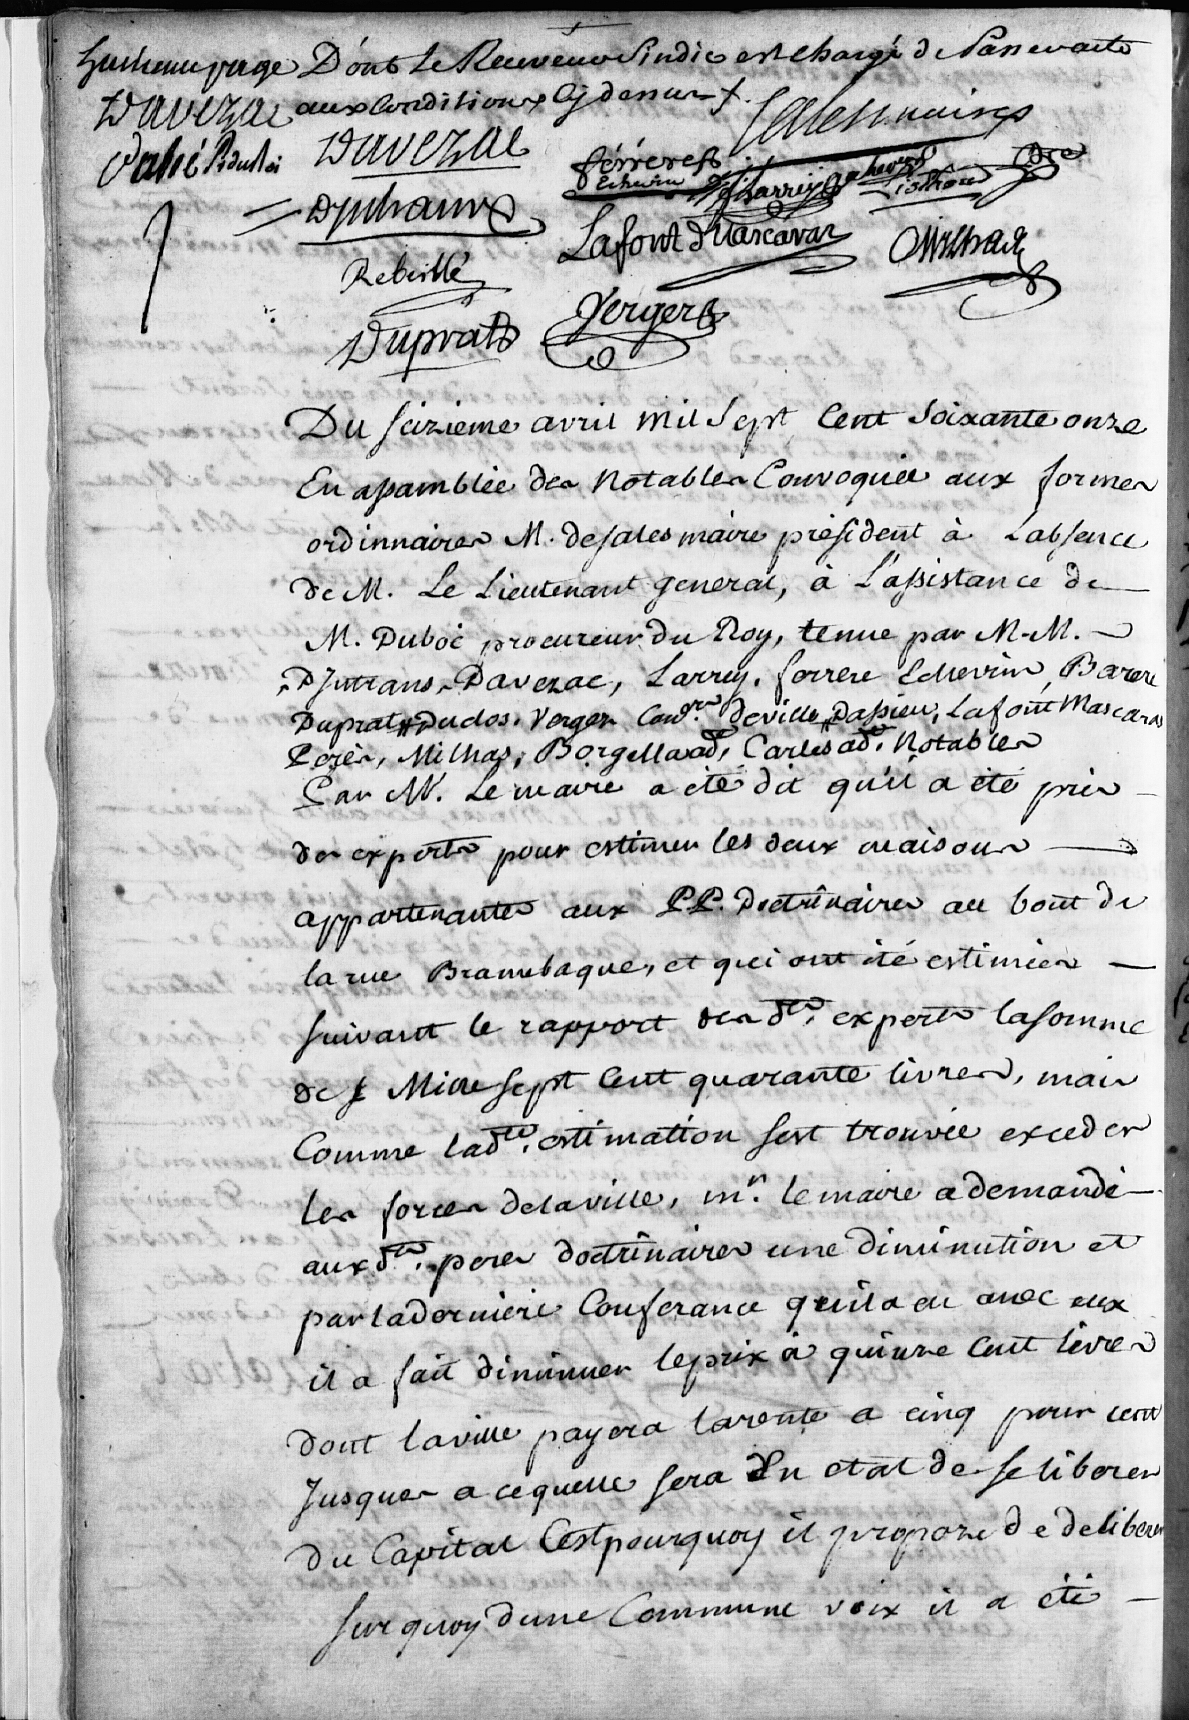 Dont Le Receveur Sindic est chargé de Passer acte
aux Conditions Cy dessus
Davezac
Davezac
férrere
Echevin
Rebeillé
Lafont Mascaras
Milhas
Duprat
Verger
Du seizieme avril mil sept Cent soixante onze
En assamblée des Notables Convoquée aux formes
ordinnaires M. desales maire président à Labsence
de M. Le Lieutenant general, à l'assistance de
M. Duboé procureur du Roy, tenue par M.M.
Djuttrans, Davezac, Larrey, ferrere Echevin, Barere
Duprat, Duclos, Verger Coners. deville, Dassieu, Lafont Mascaras
Perés, Milhas, Borgella adt, Carles adt. Notables
Par Mr. Le maire a été dit qu'il a été pris
des experts pour estimer les deux maisons
appartenantes aux PP. Doctrinaires au bout de
la rue Bramebaque, et qui ont été estimées
suivant le rapport des dts. experts lasomme
de Mille sept Cent quarante livres, mais
Comme ladte. estimation sest trouvée exceder
les forces delaville, mr. lemaire a demandé
aux dts. peres doctrinaires une diminution et
par laderniere Conferance quila eu avec eux
il a fait diminuer leprix à quinze Cent livres
dont laville payera larente a cinq pour cent
Jusques a cequelle sera En etat de se liberer
du Capital Cestpourquoy il propoze de deliberer
sur quoy dune Commune voix il a été